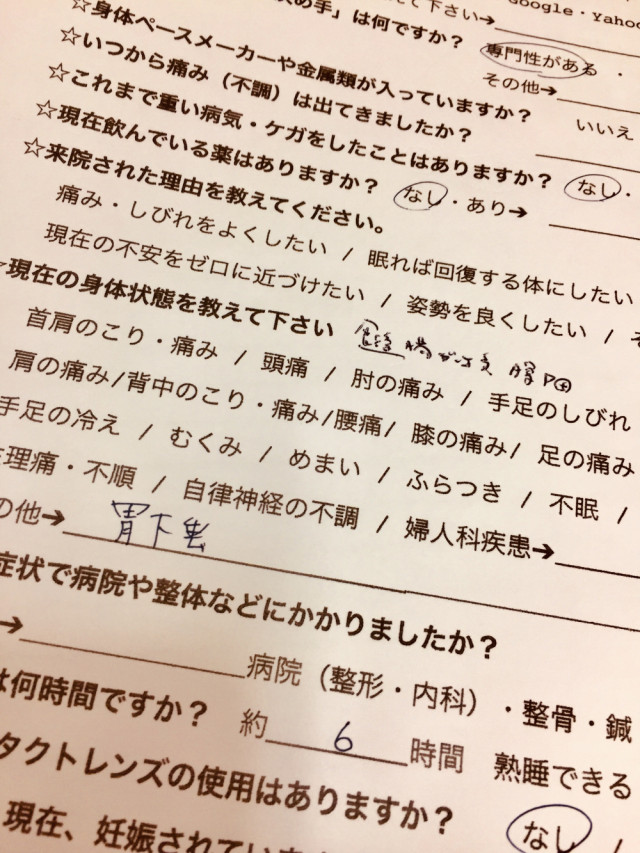 て下さい→
Google・Yahoo
め手」は何ですか?
専門性がある ・
その他→
☆身体ペースメーカーや金属類が入っていますか? いいえ
☆いつから痛み(不調)は出てきましたか?
☆これまで重い病気・ケガをしたことはありますか? なし・
☆現在飲んでいる薬はありますか? なし・あり→
☆来院された理由を教えてください。
痛み・しびれをよくしたい / 眠れば回復する体にしたい
現在の不安をゼロに近づけたい / 姿勢を良くしたい / そ
現在の身体状態を教えて下さい
首肩のこり・痛み / 頭痛 / 肘の痛み / 手足のしびれ
肩の痛み/背中のこり・痛み/腰痛/ 膝の痛み/ 足の痛み
手足の冷え / むくみ / めまい / ふらつき / 不眠 /
理痛・不順 / 自律神経の不調 / 婦人科疾患→
の他→ 胃下垂
症状で病院や整体などにかかりましたか?
→ 病院(整形・内科)・整骨・鍼
は何時間ですか? 約 6 時間 熟睡できる
タクトレンズの使用はありますか? なし /
現在、妊娠されていま